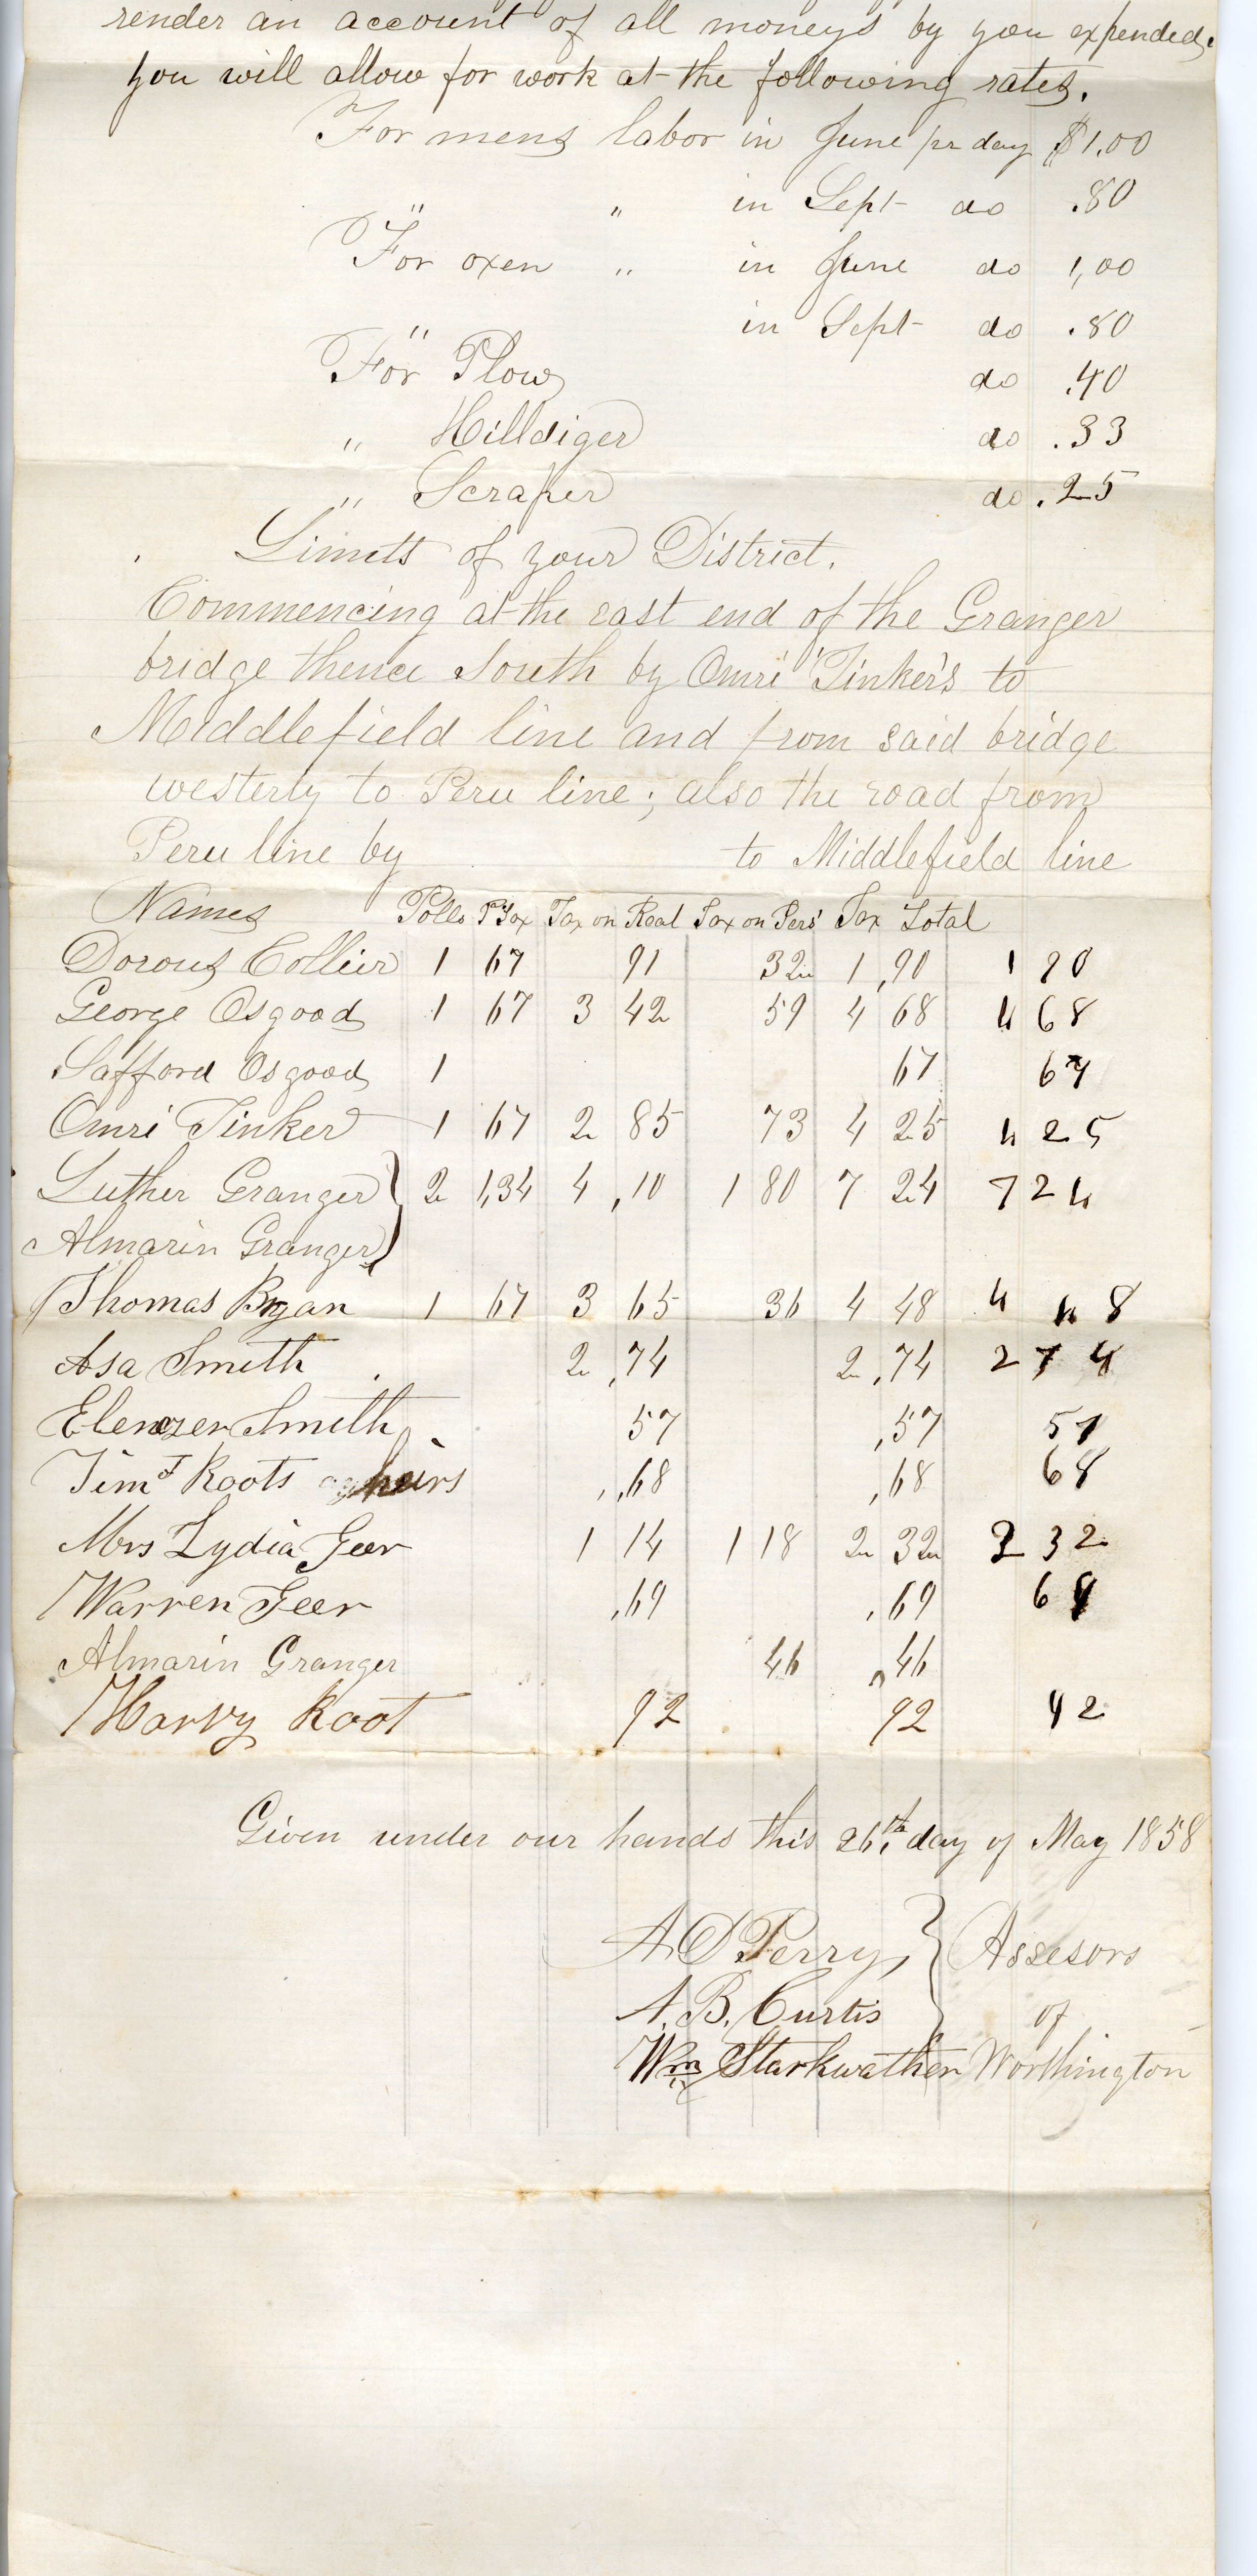 render an account of all moneys by you expended.
you will allow for work at the following rates.
For mens labor in June pr day $1.00
" " in Sept do .80
For oxen " in June do 1,00
" in Sept do .80
For Plow do .40
" Hilldiger do .33
" Scraper do .25
Limits of your District.
Commencing at the east end of the Granger
bridge thence South by Omri Tinker's to
Middlefield line and from said bridge
westerly to Peru line; also the road from
Peru line by to Middlefield line
Names Polls P Tax Tax on Real Tax on Pers' Tax Total
Dorous Collier 1 67 91 32 1,90 1 90
George Osgood 1 67 3 42 59 4 68 4 68
Safford Osgood 1 67 67
Omri Tinker 1 67 2 85 73 4 25 4 25
Luther Granger } 2 1,34 4,10 1 80 7 24 7 24
Almarin Granger }
Thomas Bryan 1 67 3 65 36 4 48 4 48
Asa Smith 2,74 2,74 2 74
Ebenezer Smith 57 ,57 57
Timt Roots heirs ,68 ,68 68
Mrs Lydia Geer 1 14 1 18 2 32 2 32
Warren Geer ,69 ,69 69
Almarin Granger 46 ,46
Harvy Root 92 92 92
Given under our hands this 26th day of May 1858
A D Perry } Assesors
A. B. Curtis of
Wm Starkwather Worthington